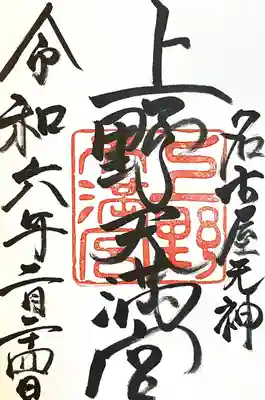 名古屋天神
上野天満宮
上野天満宮
令和六年二月二十四日